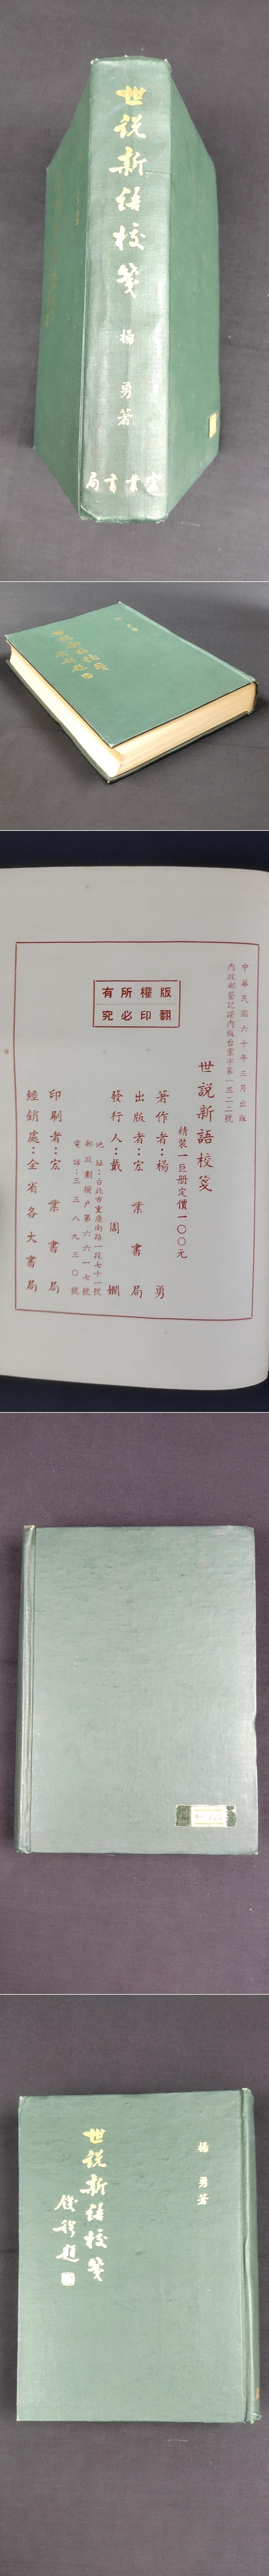 世説新語校箋
楊勇著
宏業書局
中華民國六十年三月出版
內政部登記證內版台業字第一三二二號
世説新語校箋
精裝一巨册定價一〇〇元
著作者：楊勇
出版者：宏業書局
發行人：戴周嫻
地址：台北市重慶南路一段七十一號
郵政劃撥戶第六六一七號
電話：三三八九三〇號
印刷者：宏業書局
經銷處：全省各大書局
版權所有
翻印必究
楊勇著
世説新語校箋
錢穆題